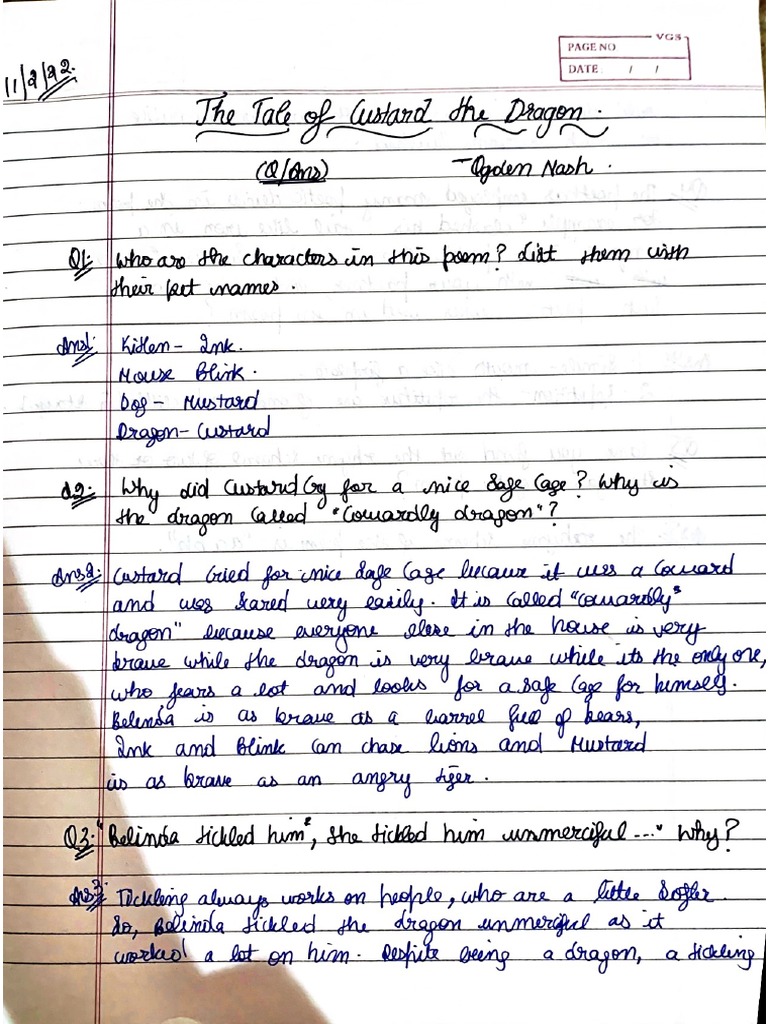 VGS
PAGE NO
DATE / /
11/2/22.
The Tale of Custard the Dragon.
(Q/Ans) - Ogden Nash.
Q1: Who are the characters in this poem? List them with
their pet names.
Ans1: Kitten - Ink.
Mouse Blink.
Dog - Mustard
Dragon - Custard
Q2: Why did Custard Cry for a nice Safe Cage? Why is
the dragon called "Cowardly dragon"?
Ans2: Custard Cried for nice Safe Cage because it was a Coward
and was scared very easily. It is called "cowardly"
dragon" because everyone else in the house is very
brave while the dragon is very brave while its the only one,
who fears a lot and looks for a safe Cage for himself.
Belinda is as brave as a barrel full of bears,
Ink and Blink can chase lions and Mustard
is as brave as an angry tiger.
Q3: "Belinda tickled him", she tickled him unmerciful ...." Why?
Ans3: Tickling always works on people, who are a little Softer.
So, Belinda tickled the dragon unmerciful as it
worked a lot on him. Despite being a dragon, a tickling